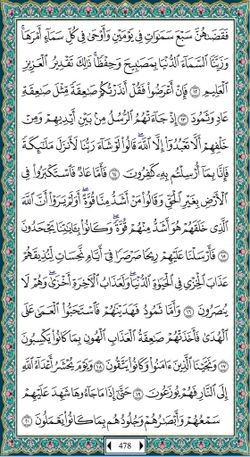 فَقَضَىٰهُنَّ سَبْعَ سَمَٰوَاتٍ فِي يَوْمَيْنِ وَأَوْحَىٰ فِي كُلِّ سَمَآءٍ أَمْرَهَا
وَزَيَّنَّا ٱلسَّمَآءَ ٱلدُّنْيَا بِمَصَٰبِيحَ وَحِفْظًا ذَٰلِكَ تَقْدِيرُ ٱلْعَزِيزِ
ٱلْعَلِيمِ ۝١٢ فَإِنْ أَعْرَضُوا۟ فَقُلْ أَنذَرْتُكُمْ صَٰعِقَةً مِّثْلَ صَٰعِقَةِ
عَادٍ وَثَمُودَ ۝١٣ إِذْ جَآءَتْهُمُ ٱلرُّسُلُ مِنۢ بَيْنِ أَيْدِيهِمْ وَمِنْ
خَلْفِهِمْ أَلَّا تَعْبُدُوٓا۟ إِلَّا ٱللَّهَ قَالُوا۟ لَوْ شَآءَ رَبُّنَا لَأَنزَلَ مَلَٰٓئِكَةً
فَإِنَّا بِمَآ أُرْسِلْتُم بِهِۦ كَٰفِرُونَ ۝١٤ فَأَمَّا عَادٌ فَٱسْتَكْبَرُوا۟ فِي
ٱلْأَرْضِ بِغَيْرِ ٱلْحَقِّ وَقَالُوا۟ مَنْ أَشَدُّ مِنَّا قُوَّةً أَوَلَمْ يَرَوْا۟ أَنَّ ٱللَّهَ
ٱلَّذِي خَلَقَهُمْ هُوَ أَشَدُّ مِنْهُمْ قُوَّةً وَكَانُوا۟ بِـَٔايَٰتِنَا يَجْحَدُونَ
۝١٥ فَأَرْسَلْنَا عَلَيْهِمْ رِيحًا صَرْصَرًا فِيٓ أَيَّامٍ نَّحِسَاتٍ لِّنُذِيقَهُمْ
عَذَابَ ٱلْخِزْيِ فِي ٱلْحَيَوٰةِ ٱلدُّنْيَا وَلَعَذَابُ ٱلْءَاخِرَةِ أَخْزَىٰ وَهُمْ لَا
يُنصَرُونَ ۝١٦ وَأَمَّا ثَمُودُ فَهَدَيْنَٰهُمْ فَٱسْتَحَبُّوا۟ ٱلْعَمَىٰ عَلَى
ٱلْهُدَىٰ فَأَخَذَتْهُمْ صَٰعِقَةُ ٱلْعَذَابِ ٱلْهُونِ بِمَا كَانُوا۟ يَكْسِبُونَ
۝١٧ وَنَجَّيْنَا ٱلَّذِينَ ءَامَنُوا۟ وَكَانُوا۟ يَتَّقُونَ ۝١٨ وَيَوْمَ يُحْشَرُ أَعْدَآءُ ٱللَّهِ
إِلَى ٱلنَّارِ فَهُمْ يُوزَعُونَ ۝١٩ حَتَّىٰٓ إِذَا مَا جَآءُوهَا شَهِدَ عَلَيْهِمْ
سَمْعُهُمْ وَأَبْصَٰرُهُمْ وَجُلُودُهُم بِمَا كَانُوا۟ يَعْمَلُونَ ۝٢٠
478